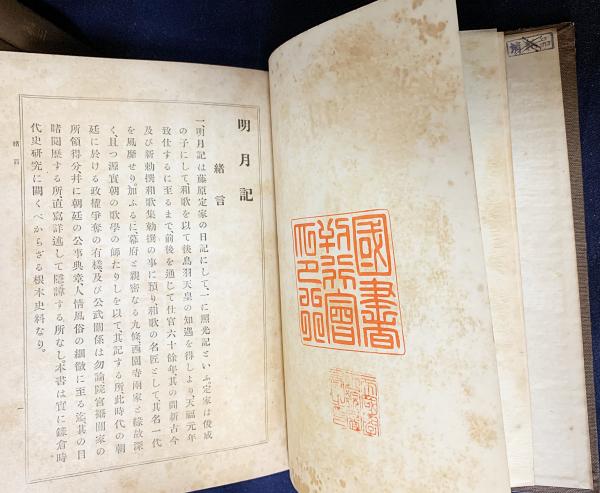 明月記
緒言
一、明月記は藤原定家の日記にして、一に照光記といふ、定家は俊成
の子にして和歌を以て後鳥羽天皇の知遇を得しより、天福元年
致仕するに至るまで、前後を通じて仕官六十餘年、其の間新古今
及び新勅撰和歌集勅撰の事に預り、和歌の名匠として、其名一代
を風靡せり。加ふるに、幕府と親密なる九條西園寺兩家と緣故深
く、且つ源實朝の歌學の師たりしを以て、其記する所此時代の朝
廷に於ける政權爭奪の有樣、及び公武關係は勿論、院宮攝關家の
所領得分、幷に朝廷の公事典章、人情風俗の細微に至る迄、其の目
睹閱歷する所直寫詳述して隱諱する所なし。本書は實に鎌倉時
代史硏究に闕くべからざる根本史料なり。
緒言
一
國書
刊行會
印行